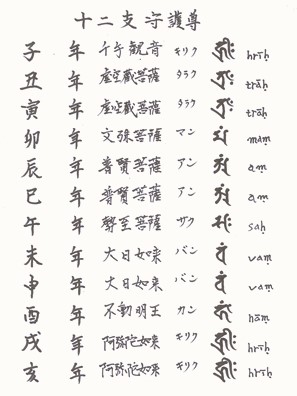 十二支守護尊
子 年 千手観音 キリク ह्रीः hrīḥ
丑 年 虚空蔵菩薩 タラク त्राः trāḥ
寅 年 虚空蔵菩薩 タラク त्राः trāḥ
卯 年 文殊菩薩 マン मं maṃ
辰 年 普賢菩薩 アン अं aṃ
巳 年 普賢菩薩 アン अं aṃ
午 年 勢至菩薩 サク सः saḥ
未 年 大日如来 バン वं vaṃ
申 年 大日如来 バン वं vaṃ
酉 年 不動明王 カン hāṃ
戌 年 阿弥陀如来 キリク ह्रीः hrīḥ
亥 年 阿弥陀如来 キリク ह्रीः hrīḥ